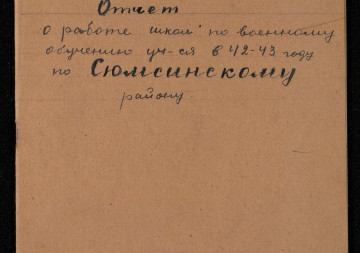 Отчет
о работе школ по военному
обучению уч-ся в 42-43 году
по Сюмсинскому
району.